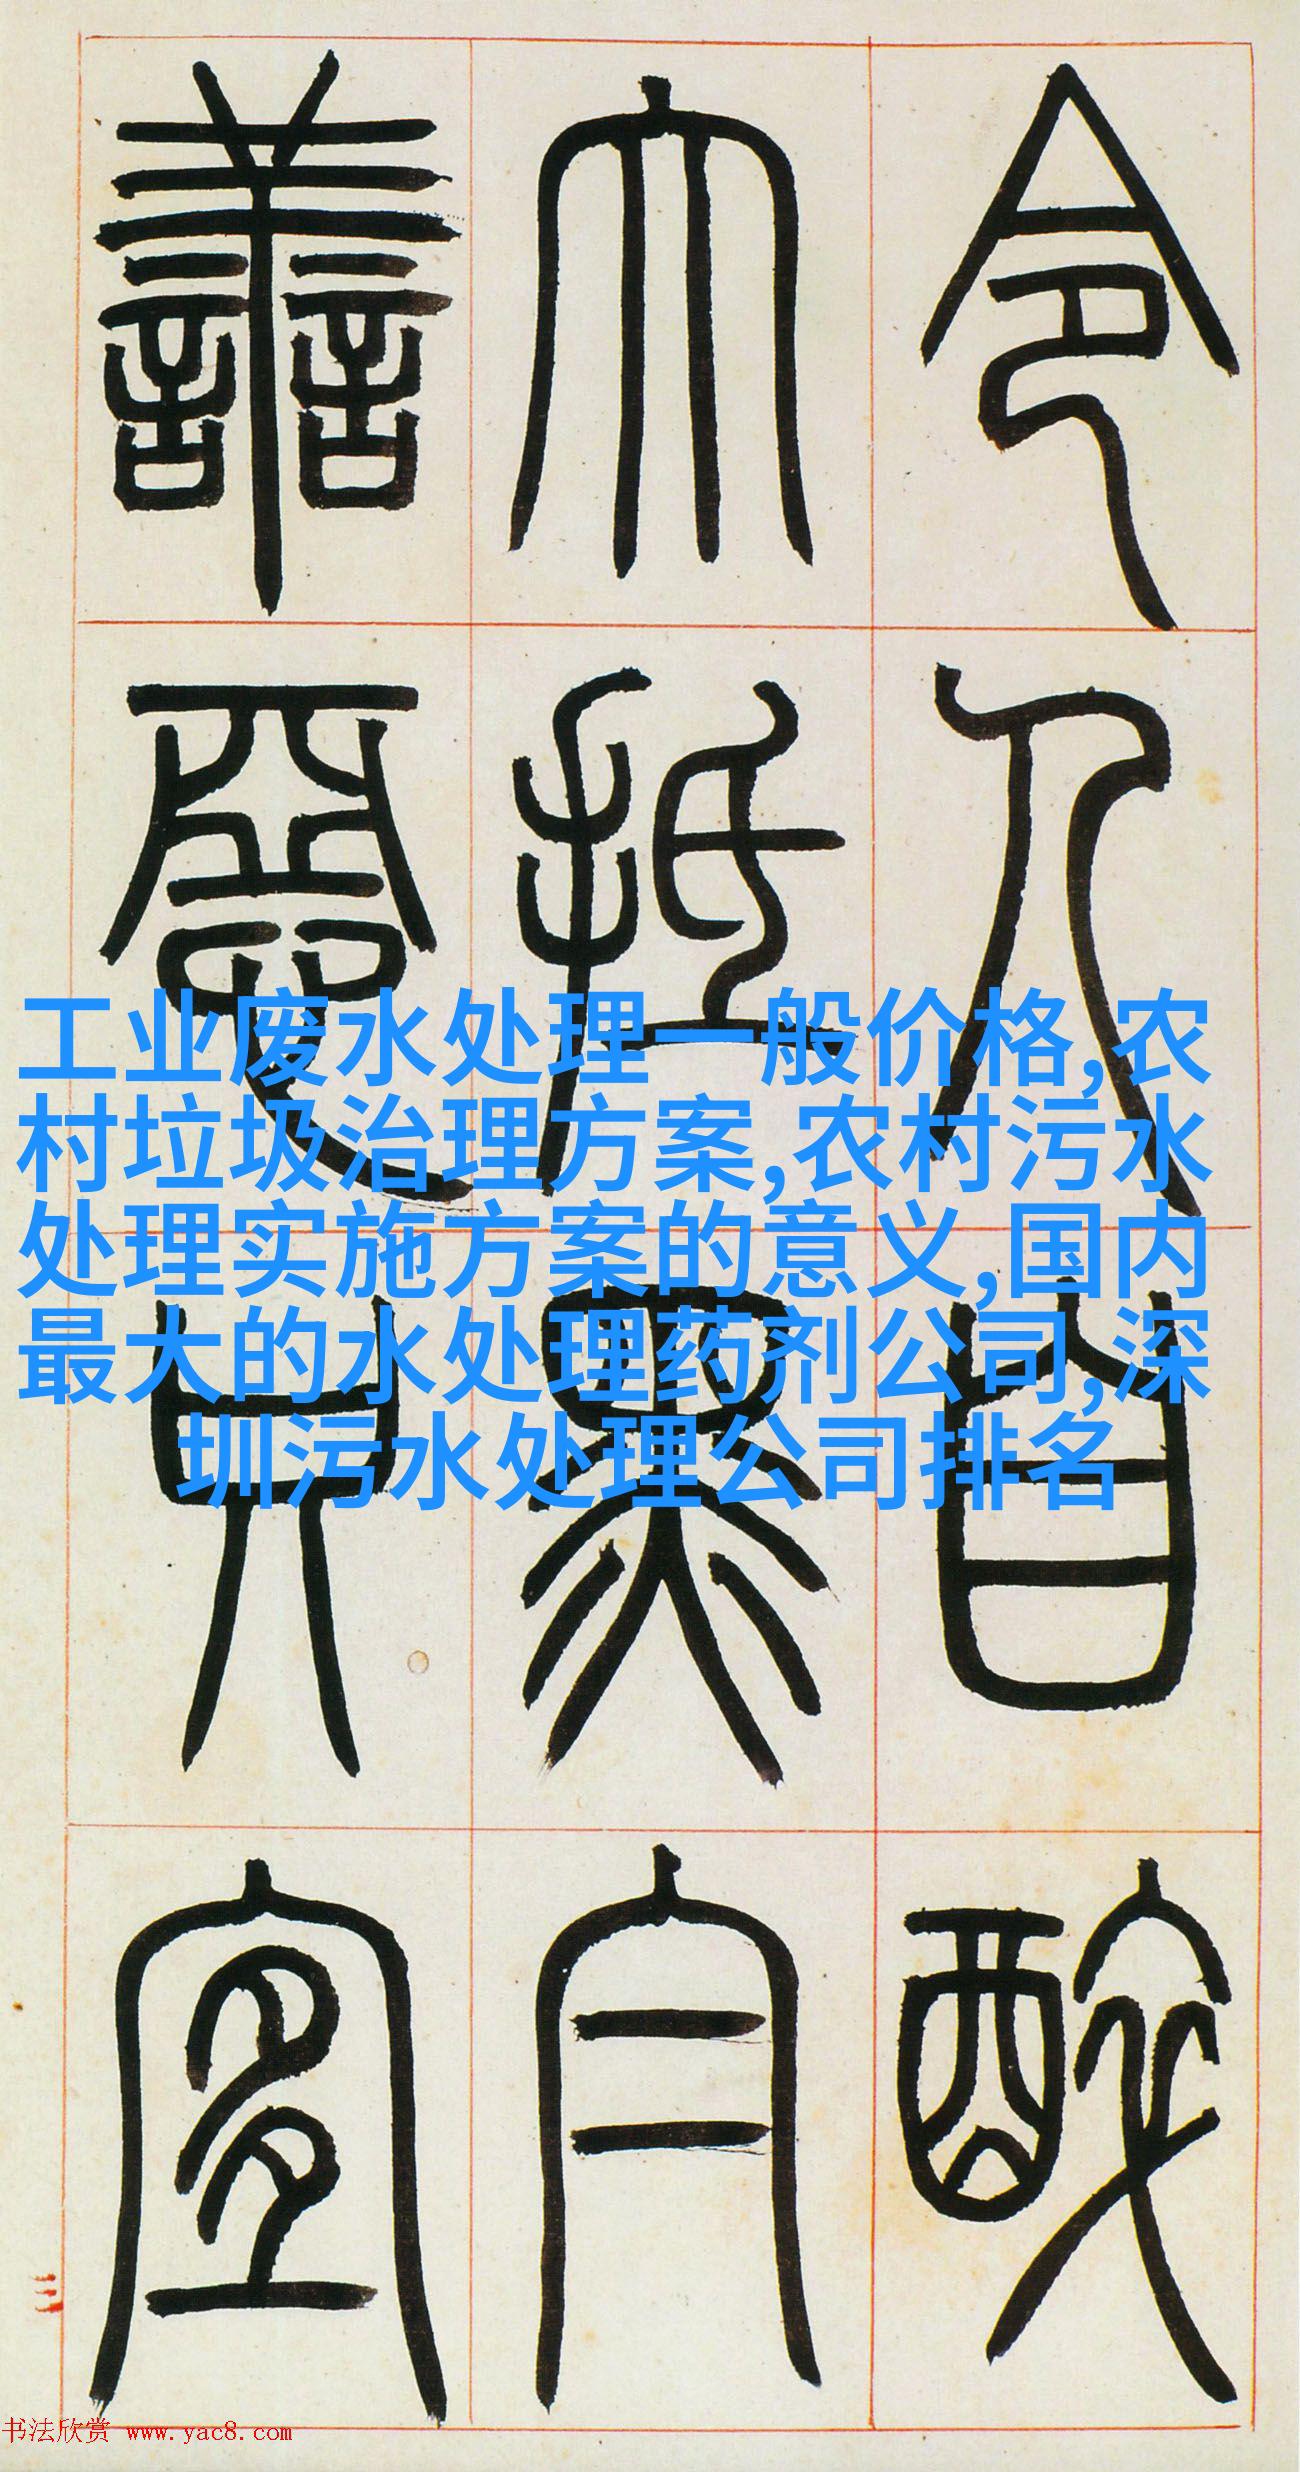 令人自
大抵黑
譱宜
工业废水处理一般价格,农
村垃圾治理方案,农村污水
处理实施方案的意义,国内
最大的水处理药剂公司,深
圳污水处理公司排名
三
书法欣赏 www.yac8.com